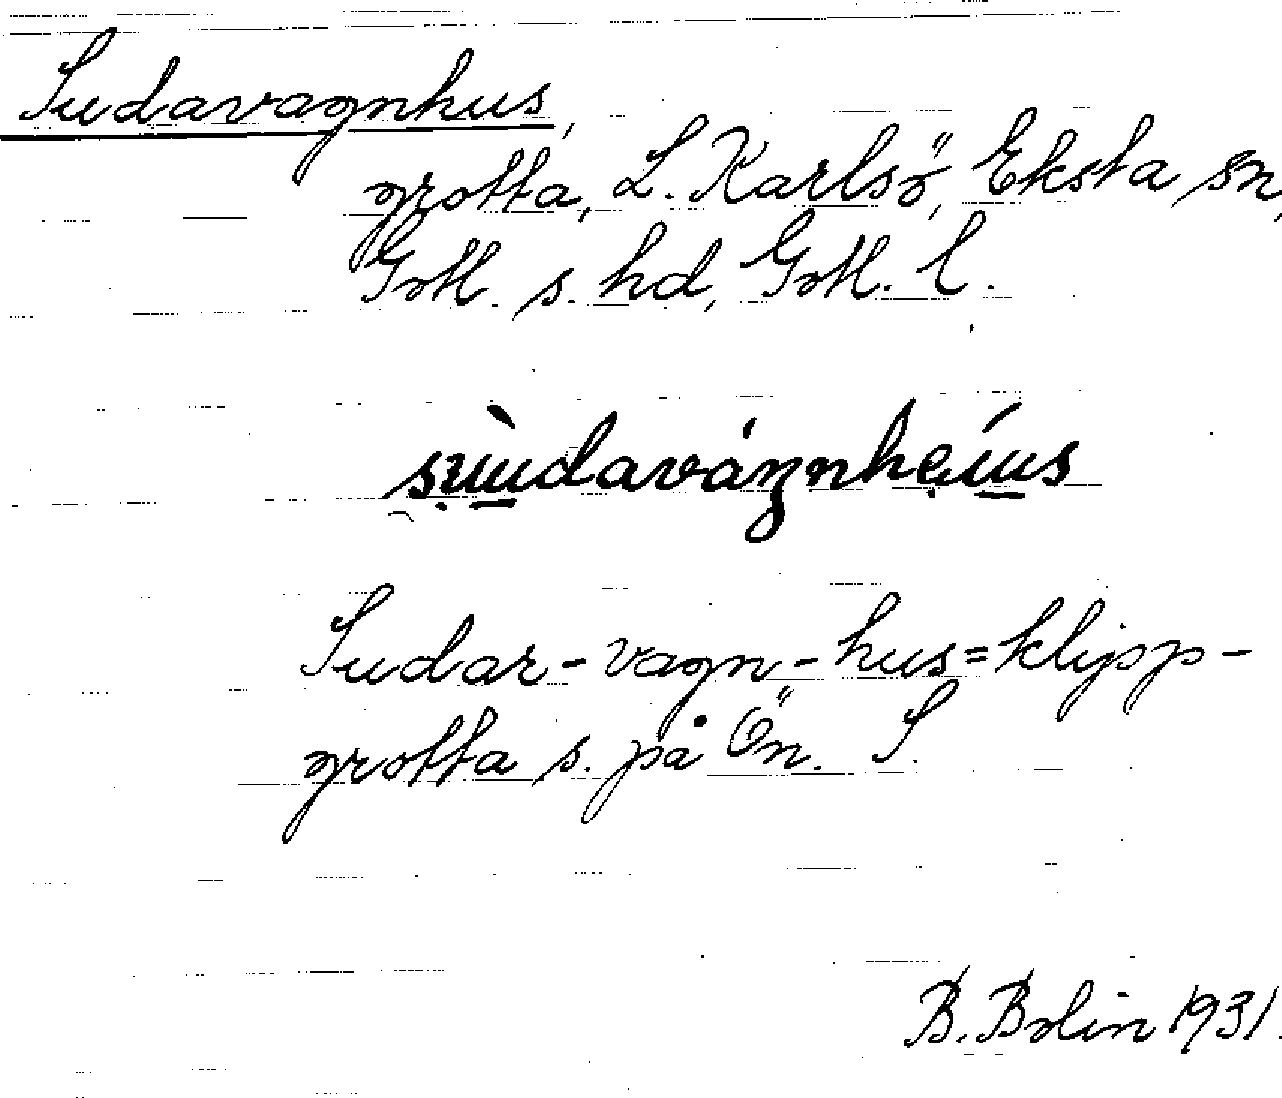 Sudavagnhus,
grotta, L. Karlsö, Eksta sn,
Gotl. s. hd, Gotl. l.
sùudaváŋnheúus
Sudar-vagn-hus=klipp-
grotta s. på Ön. S.
B. Bolin 1931.